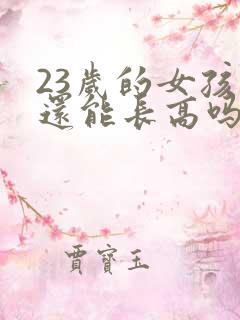 23歲的女孩
還能長高吗
賈寶玉